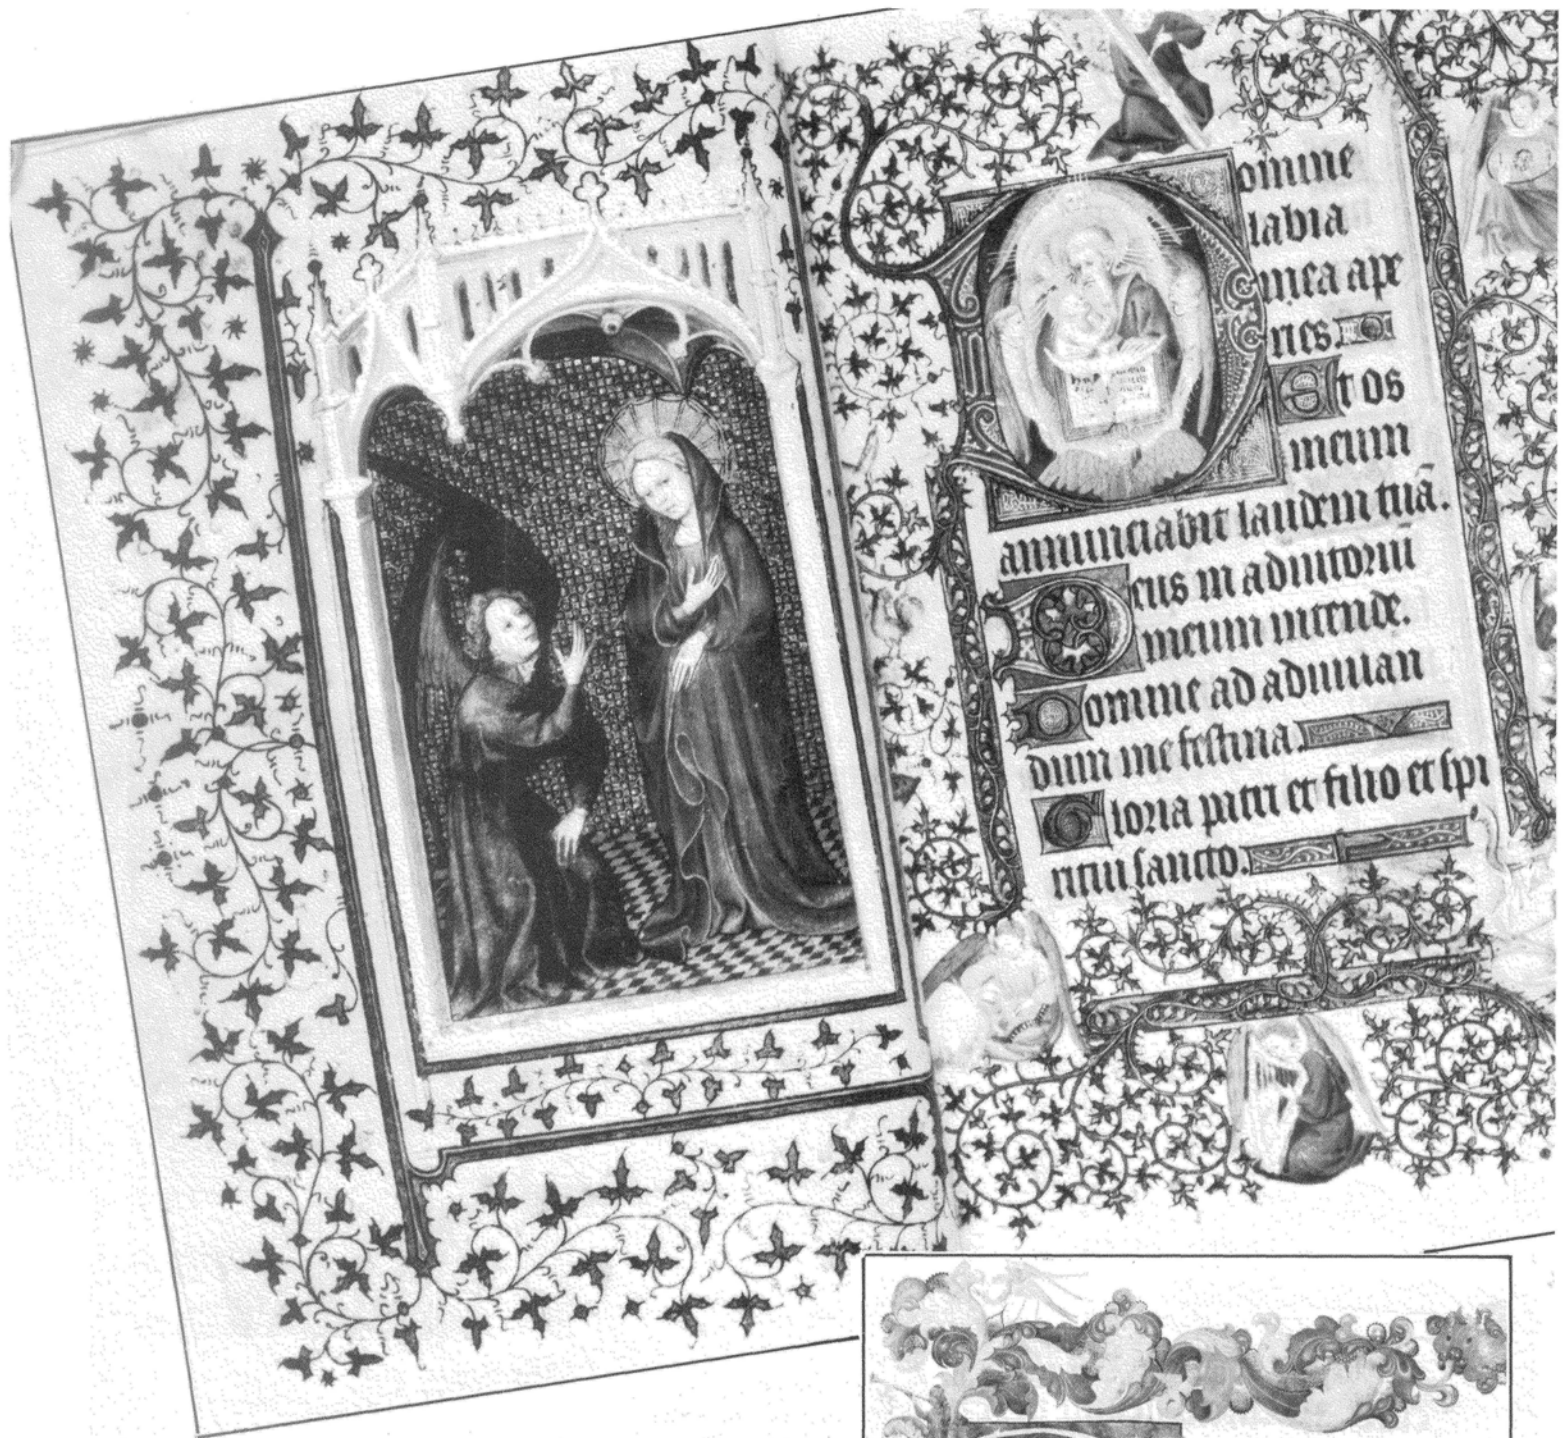 Domine
labia
mea ape
ries.
Et os
meum
annunciabit laudem tuā.
Deus in adiutoriū
meum intende.
Domine ad adiuuan
dum me festina.
Gloria patri et filio et spi
ritui sancto.